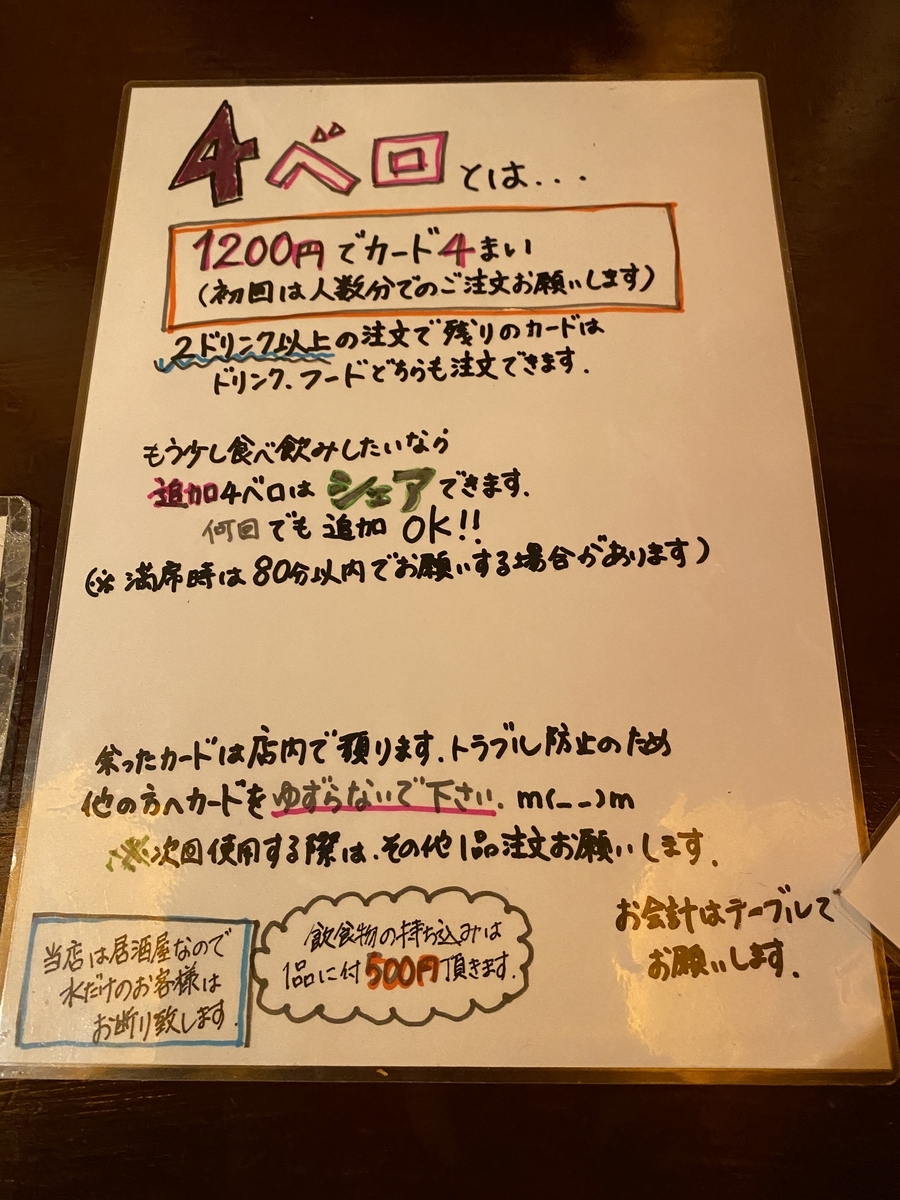 4ベロとは...
1200円でカード4まい
(初回は人数分でのご注文お願いします)
2ドリンク以上の注文で残りのカードは
ドリンク、フードどちらも注文できます.
もう少し食べ飲みしたいなら
追加4ベロは シェアできます.
何回でも追加 OK!!
(※ 満席時は80分以内でお願いする場合があります)
余ったカードは店内で預ります.トラブル防止のため
他の方へカードをゆずらないで下さい. m(_ _)m
※次回使用する際は、その他1品注文お願いします.
当店は居酒屋なので
水だけのお客様は
お断り致します.
飲食物の持ち込みは
1品に付500円頂きます.
お会計はテーブルで
お願いします.